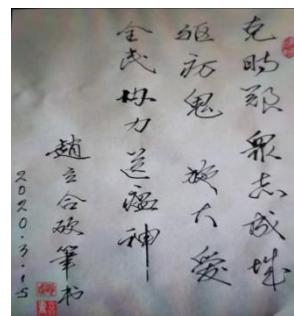 克時艱 眾志成城
驱疠鬼 施大爱
全民协力送瘟神
趙立合硬筆书
2020.3.15